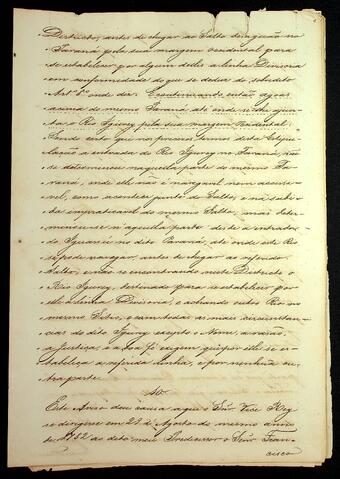 Districto, antes de chegar ao Salto denguão no
Paraná pela sua margem occidental para
se estabelecer por algum delles a linha Divisoria
em conformidade do que se dedos do sobredito
Artº 6º onde diz: Continuando então agoas
acima do mesmo Paraná até onde se lhe ajun-
ta o Rio Igurey pela sua margem Occidental.
Sendo certo que no proseguimento desta Estipu-
lação a entrada do Rio Igurey no Paraná, não
se determinou naquella parte do mesmo Pa-
raná, onde elle não é navegavel nem accessi-
vel, como acontece junto do Salto, e na subi-
da impraticavel do mesmo Salto, mas deter-
minou-se n'aquella parte desde a entrada
do Iguassú no dito Paraná, até onde este Rio
se pode navegar, antes de chegar ao referido
Salto, e não se encontrando neste Districto o
Rio Igurey, destinado para se estabelecer por
elle a linha Divisoria, e achando outro Rio no
mesmo Sitio, e com todas as mais circunstan-
cias do dito Igurey excepto o Nome, a razão,
a Justiça, e a boa fé exigem que por elle se es-
tabeleça a referida linha, e por nenhuma ou-
tra parte.
40
Este Aviso deu causa a que o Snr. Vice Rey
se dirigisse em 23 de Agosto do mesmo anno
de 1782 ao dito meu Predecessor o Snr. Fran-
cisco